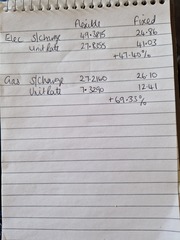 Flexible Fixed
Elec S/Charge 49.3815 24.86
Unit Rate 27.8155 41.03
+47.40%
Gas S/Charge 27.2160 26.10
Unit Rate 7.3290 12.41
+69.33%